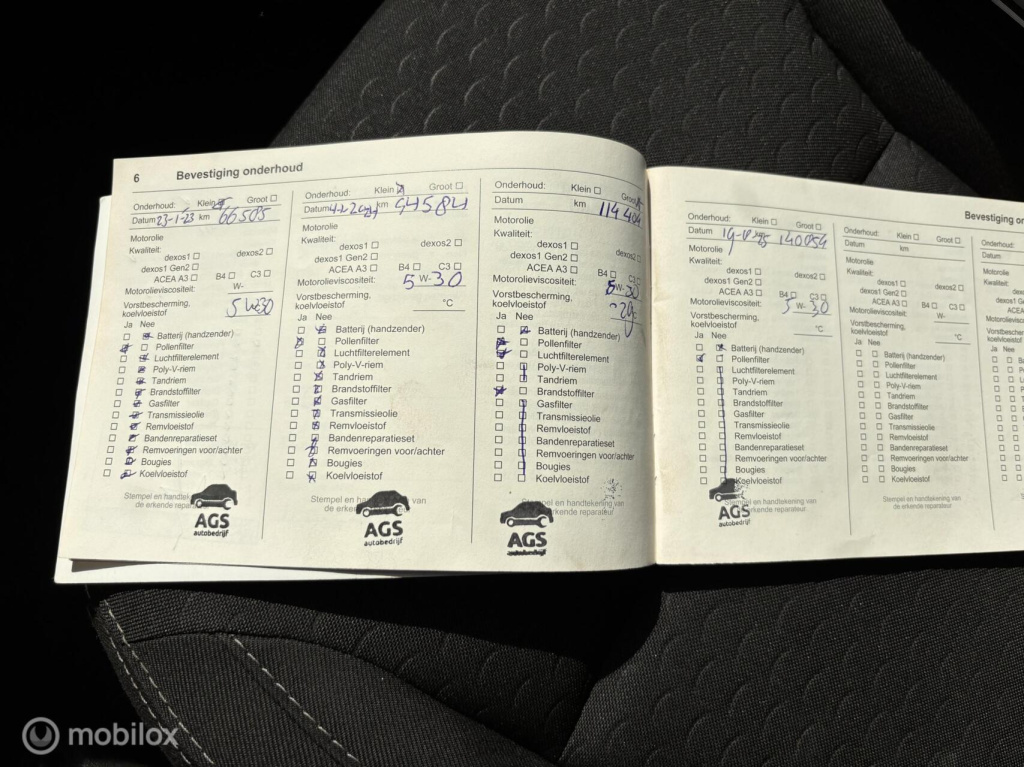 6 Bevestiging onderhoud
Onderhoud: Klein Groot
Datum 23-1-23 km 66505
Motorolie
Kwaliteit:
dexos1 dexos2
dexos1 Gen2
ACEA A3 B4 C3
Motorolieviscositeit: W-
Vorstbescherming, 5W30
koelvloeistof
Ja Nee
Batterij (handzender)
Pollenfilter
Luchtfilterelement
Poly-V-riem
Tandriem
Brandstoffilter
Gasfilter
Transmissieolie
Remvloeistof
Bandenreparatieset
Remvoeringen voor/achter
Bougies
Koelvloeistof
Stempel en handtekening
de erkende reparateur
AGS
autobedrijf
Onderhoud: Klein Groot
Datum km 94584
Motorolie
Kwaliteit:
dexos1 dexos2
dexos1 Gen2
ACEA A3 B4 C3
Motorolieviscositeit: 5 W-30
Vorstbescherming,
koelvloeistof °C
Ja Nee
Batterij (handzender)
Pollenfilter
Luchtfilterelement
Poly-V-riem
Tandriem
Brandstoffilter
Gasfilter
Transmissieolie
Remvloeistof
Bandenreparatieset
Remvoeringen voor/achter
Bougies
Koelvloeistof
Stempel en van
de erkende
AGS
autobedrijf
Onderhoud: Klein Groot
Datum km 114404
Motorolie
Kwaliteit:
dexos1 dexos2
dexos1 Gen2
ACEA A3 B4 C3
Motorolieviscositeit: 5 W-30
Vorstbescherming,
koelvloeistof
Ja Nee
Batterij (handzender)
Pollenfilter
Luchtfilterelement
Poly-V-riem
Tandriem
Brandstoffilter
Gasfilter
Transmissieolie
Remvloeistof
Bandenreparatieset
Remvoeringen voor/achter
Bougies
Koelvloeistof
Stempel en handtekening van
de erkende reparateur
AGS
autobedrijf
Bevestiging on
Onderhoud: Klein Groot
Datum 140054
Motorolie
Kwaliteit:
dexos1 dexos2
dexos1 Gen2
ACEA A3 B4 C3
Motorolieviscositeit: 5 W-30
Vorstbescherming,
koelvloeistof °C
Ja Nee
Batterij (handzender)
Pollenfilter
Luchtfilterelement
Poly-V-riem
Tandriem
Brandstoffilter
Gasfilter
Transmissieolie
Remvloeistof
Bandenreparatieset
Remvoeringen voor/achter
Bougies
Koelvloeistof
Stempel en handtekening van
de erkende reparateur
AGS
autobedrijf
Onderhoud: Klein Groot
Datum km
Motorolie
Kwaliteit:
dexos1 dexos2
dexos1 Gen2
ACEA A3 B4 C3
Motorolieviscositeit: W-
Vorstbescherming,
koelvloeistof °C
Ja Nee
Batterij (handzender)
Pollenfilter
Luchtfilterelement
Poly-V-riem
Tandriem
Brandstoffilter
Gasfilter
Transmissieolie
Remvloeistof
Bandenreparatieset
Remvoeringen voor/achter
Bougies
Koelvloeistof
Stempel en handtekening van
de erkende reparateur
Onderhoud:
Datum
Motorolie
Kwaliteit:
Ja Nee
mobilox